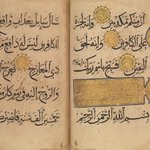 أن منكم مكذبين وإنه
لحسرة على الكافرين وإنه لحق
اليقين فسبح باسم ربك العظيم
بسم الله الرحمن الرحيم
سأل سائل بعذاب واقع
للكافرين ليس له دافع من الله
ذي المعارج تعرج الملائكة
والروح إليه في يوم كان مقداره
خمسين ألف سنة فاصبر صبرا